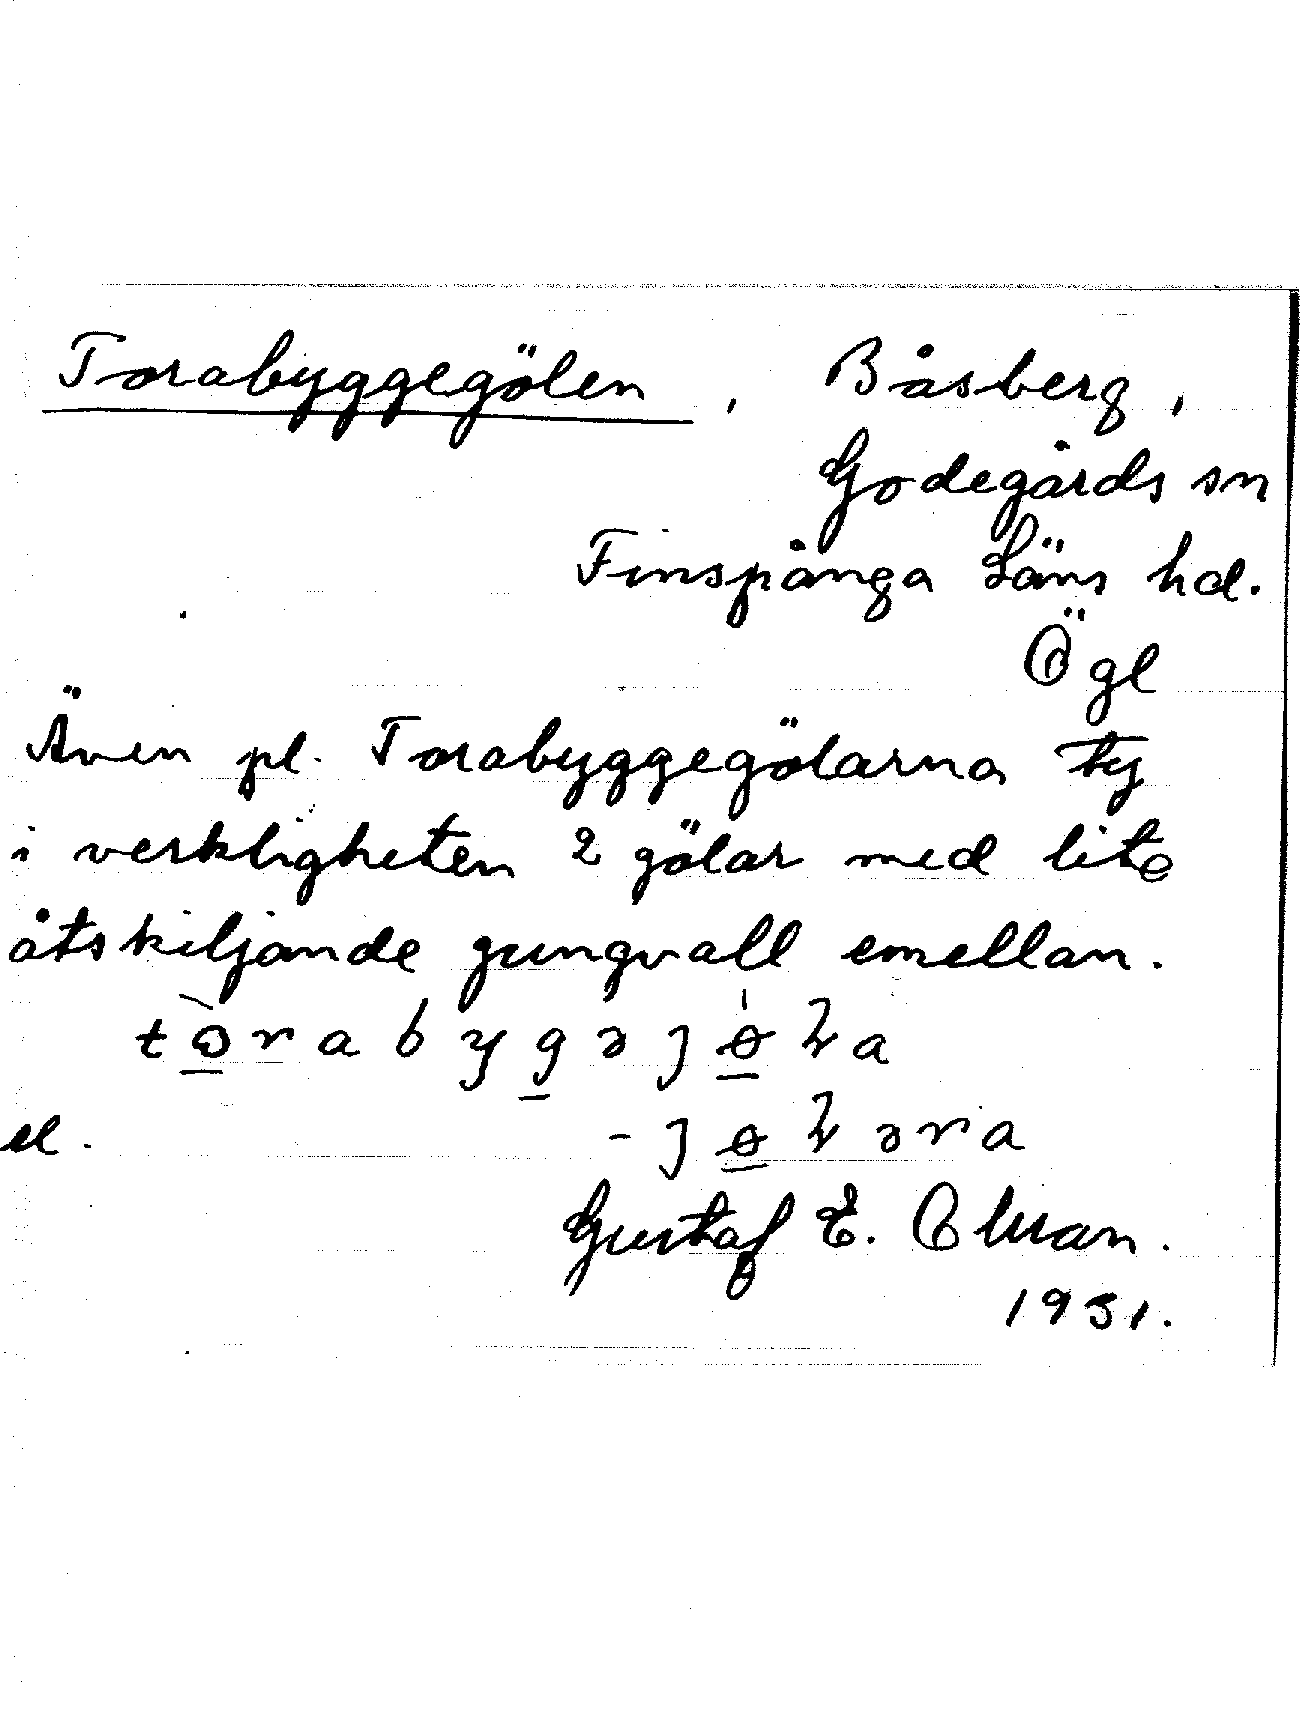 Torabyggegölen, Båsberg,
Godegårds sn
Finspånga Läns hd.
Ögl
Även pl. Torabyggegölarna ty
i verkligheten 2 gölar med lite
åtskiljande gungvall emellan.
el.
Gustaf E. Olsson.
1931.